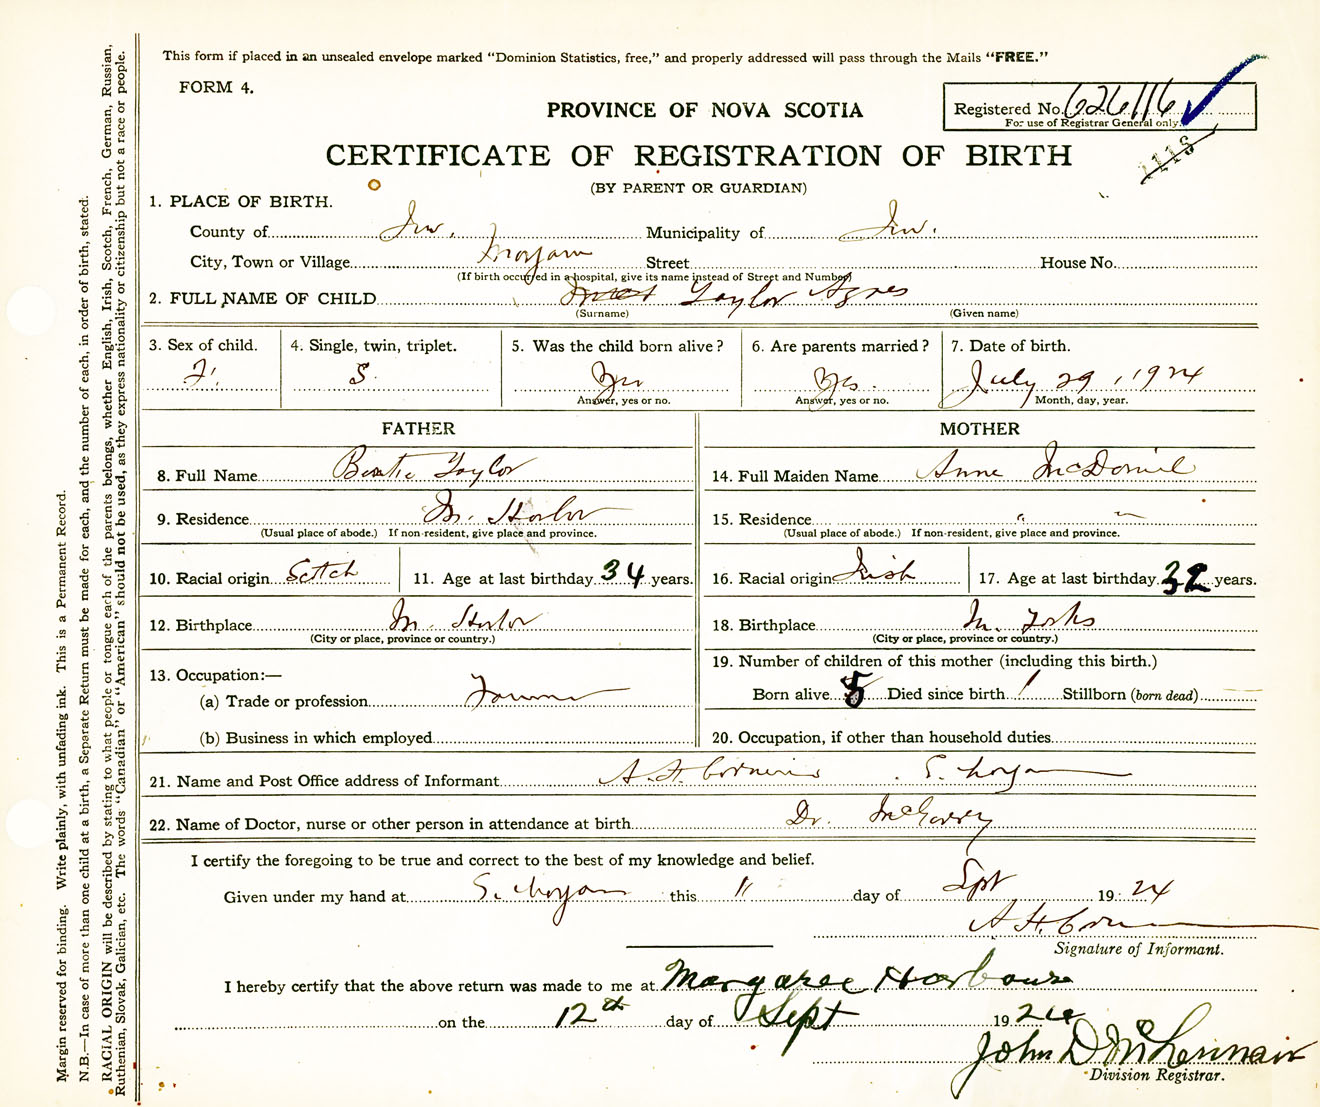 This form if placed in an unsealed envelope marked "Dominion Statistics, free," and properly addressed will pass through the Mails "FREE."
FORM 4.
PROVINCE OF NOVA SCOTIA
Registered No. 626116
For use of Registrar General only.
1115
CERTIFICATE OF REGISTRATION OF BIRTH
(BY PARENT OR GUARDIAN)
1. PLACE OF BIRTH.
County of Inv. Municipality of Inv.
City, Town or Village Street House No.
(If birth occurred in a hospital, give its name instead of Street and Number)
2. FULL NAME OF CHILD Taylor Agnes
(Surname) (Given name)
3. Sex of child. 4. Single, twin, triplet. 5. Was the child born alive? 6. Are parents married? 7. Date of birth.
F. S Yes Yes. July 29, 1924
Answer, yes or no. Answer, yes or no. Month, day, year.
FATHER MOTHER
8. Full Name Taylor 14. Full Maiden Name Anne McDaniel
9. Residence M. Harbor 15. Residence " "
(Usual place of abode.) If non-resident, give place and province. (Usual place of abode.) If non-resident, give place and province.
10. Racial origin Scotch 11. Age at last birthday 34 years. 16. Racial origin Irish 17. Age at last birthday 32 years.
12. Birthplace M. Harbor 18. Birthplace M. Forks
(City or place, province or country.) (City or place, province or country.)
13. Occupation:— 19. Number of children of this mother (including this birth.)
(a) Trade or profession Farmer Born alive 5 Died since birth 1 Stillborn (born dead)
(b) Business in which employed 20. Occupation, if other than household duties
21. Name and Post Office address of Informant A. H.
22. Name of Doctor, nurse or other person in attendance at birth Dr. McGarry
I certify the foregoing to be true and correct to the best of my knowledge and belief.
Given under my hand at this 11 day of Sept 1924
A. H.
Signature of Informant.
I hereby certify that the above return was made to me at Margaree Harbour
on the 12th day of Sept 1924
John D McLennan
Division Registrar.
Margin reserved for binding. Write plainly, with unfading ink. This is a Permanent Record.
N.B.—In case of more than one child at a birth, a Separate Return must be made for each, and the number of each, in order of birth, stated.
RACIAL ORIGIN will be described by stating to what people or tongue each of the parents belongs, whether English, Irish, Scotch, French, German, Russian,
Ruthenian, Slovak, Galician, etc. The words "Canadian" or "American" should not be used, as they express nationality or citizenship but not a race or people.